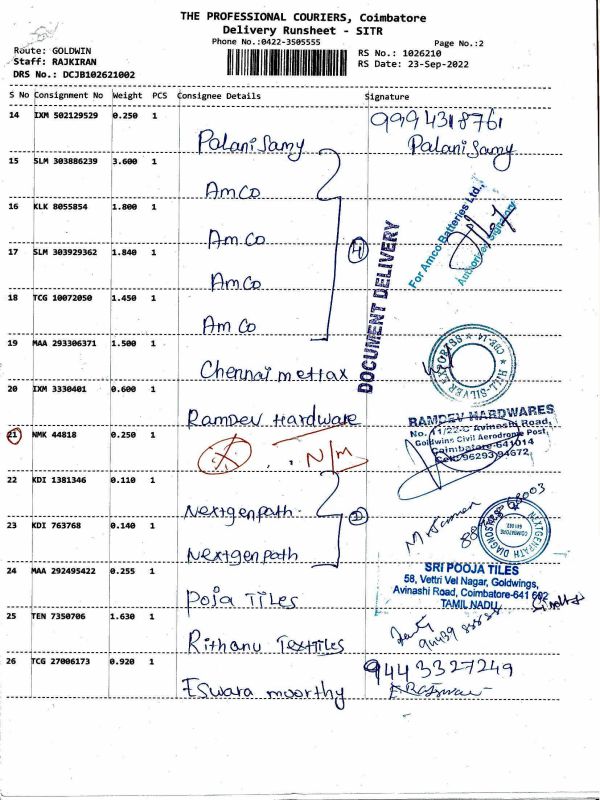 THE PROFESSIONAL COURIERS, Coimbatore
Delivery Runsheet - SITR
Phone No.:0422-3505555 Page No.:2
Route: GOLDWIN RS No.: 1026210
Staff: RAJKIRAN RS Date: 23-Sep-2022
DRS No.: DCJB102621002
S No Consignment No Weight PCS Consignee Details Signature
14 IXM 502129529 0.250 1 9994318761
Palanisamy Palanisamy
15 SLM 303886239 3.600 1
AmCo
16 KLK 8055854 1.800 1
AmCo
17 SLM 303929362 1.840 1
AmCo
18 TCG 10072050 1.450 1
AmCo
4
DOCUMENT DELIVERY
For Amco Batteries Ltd.,
Authorised Signatory
19 MAA 293306371 1.500 1
Chennai mettax
HILL-SILVER EXPORTSS CBE-14
20 IXM 3330401 0.600 1
Ramdev Hardware
RAMDEV HARDWARES
No. 11/22-C Avinashi Road,
Goldwins Civil Aerodrome Post,
Coimbatore-641014
Cell: 96293 94672
21 NMK 44818 0.250 1
N/m
22 KDI 1381346 0.110 1
Nextgenpath
23 KDI 763768 0.140 1
Nextgenpath
2
NEXTGENPATH DIAGNOSTICS
COIMBATORE
24 MAA 292495422 0.255 1
Poja TILES
SRI POOJA TILES
58, Vettri Vel Nagar, Goldwings,
Avinashi Road, Coimbatore-641 602
TAMIL NADU
25 TEN 7350706 1.630 1
Rithanu TexTiles
26 TCG 27006173 0.920 1 9443327249
Eswara moorthy